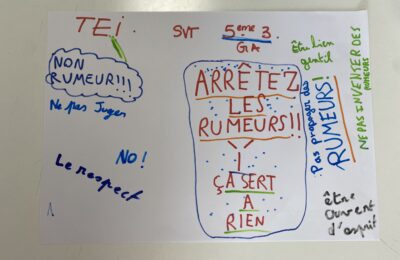 TEi
SVT 5eme 3
GA
NON
RUMEUR!!!
Ne pas Juger
NO!
Le respect
ARRÊTEZ
LES
RUMEURS!!
Y
ÇA SERT
A
RIEN
Être bien
gentil
Pas propager des
RUMEURS!
NE PAS INVENTER DES
RUMEURS
être
ouvert
d'esprit